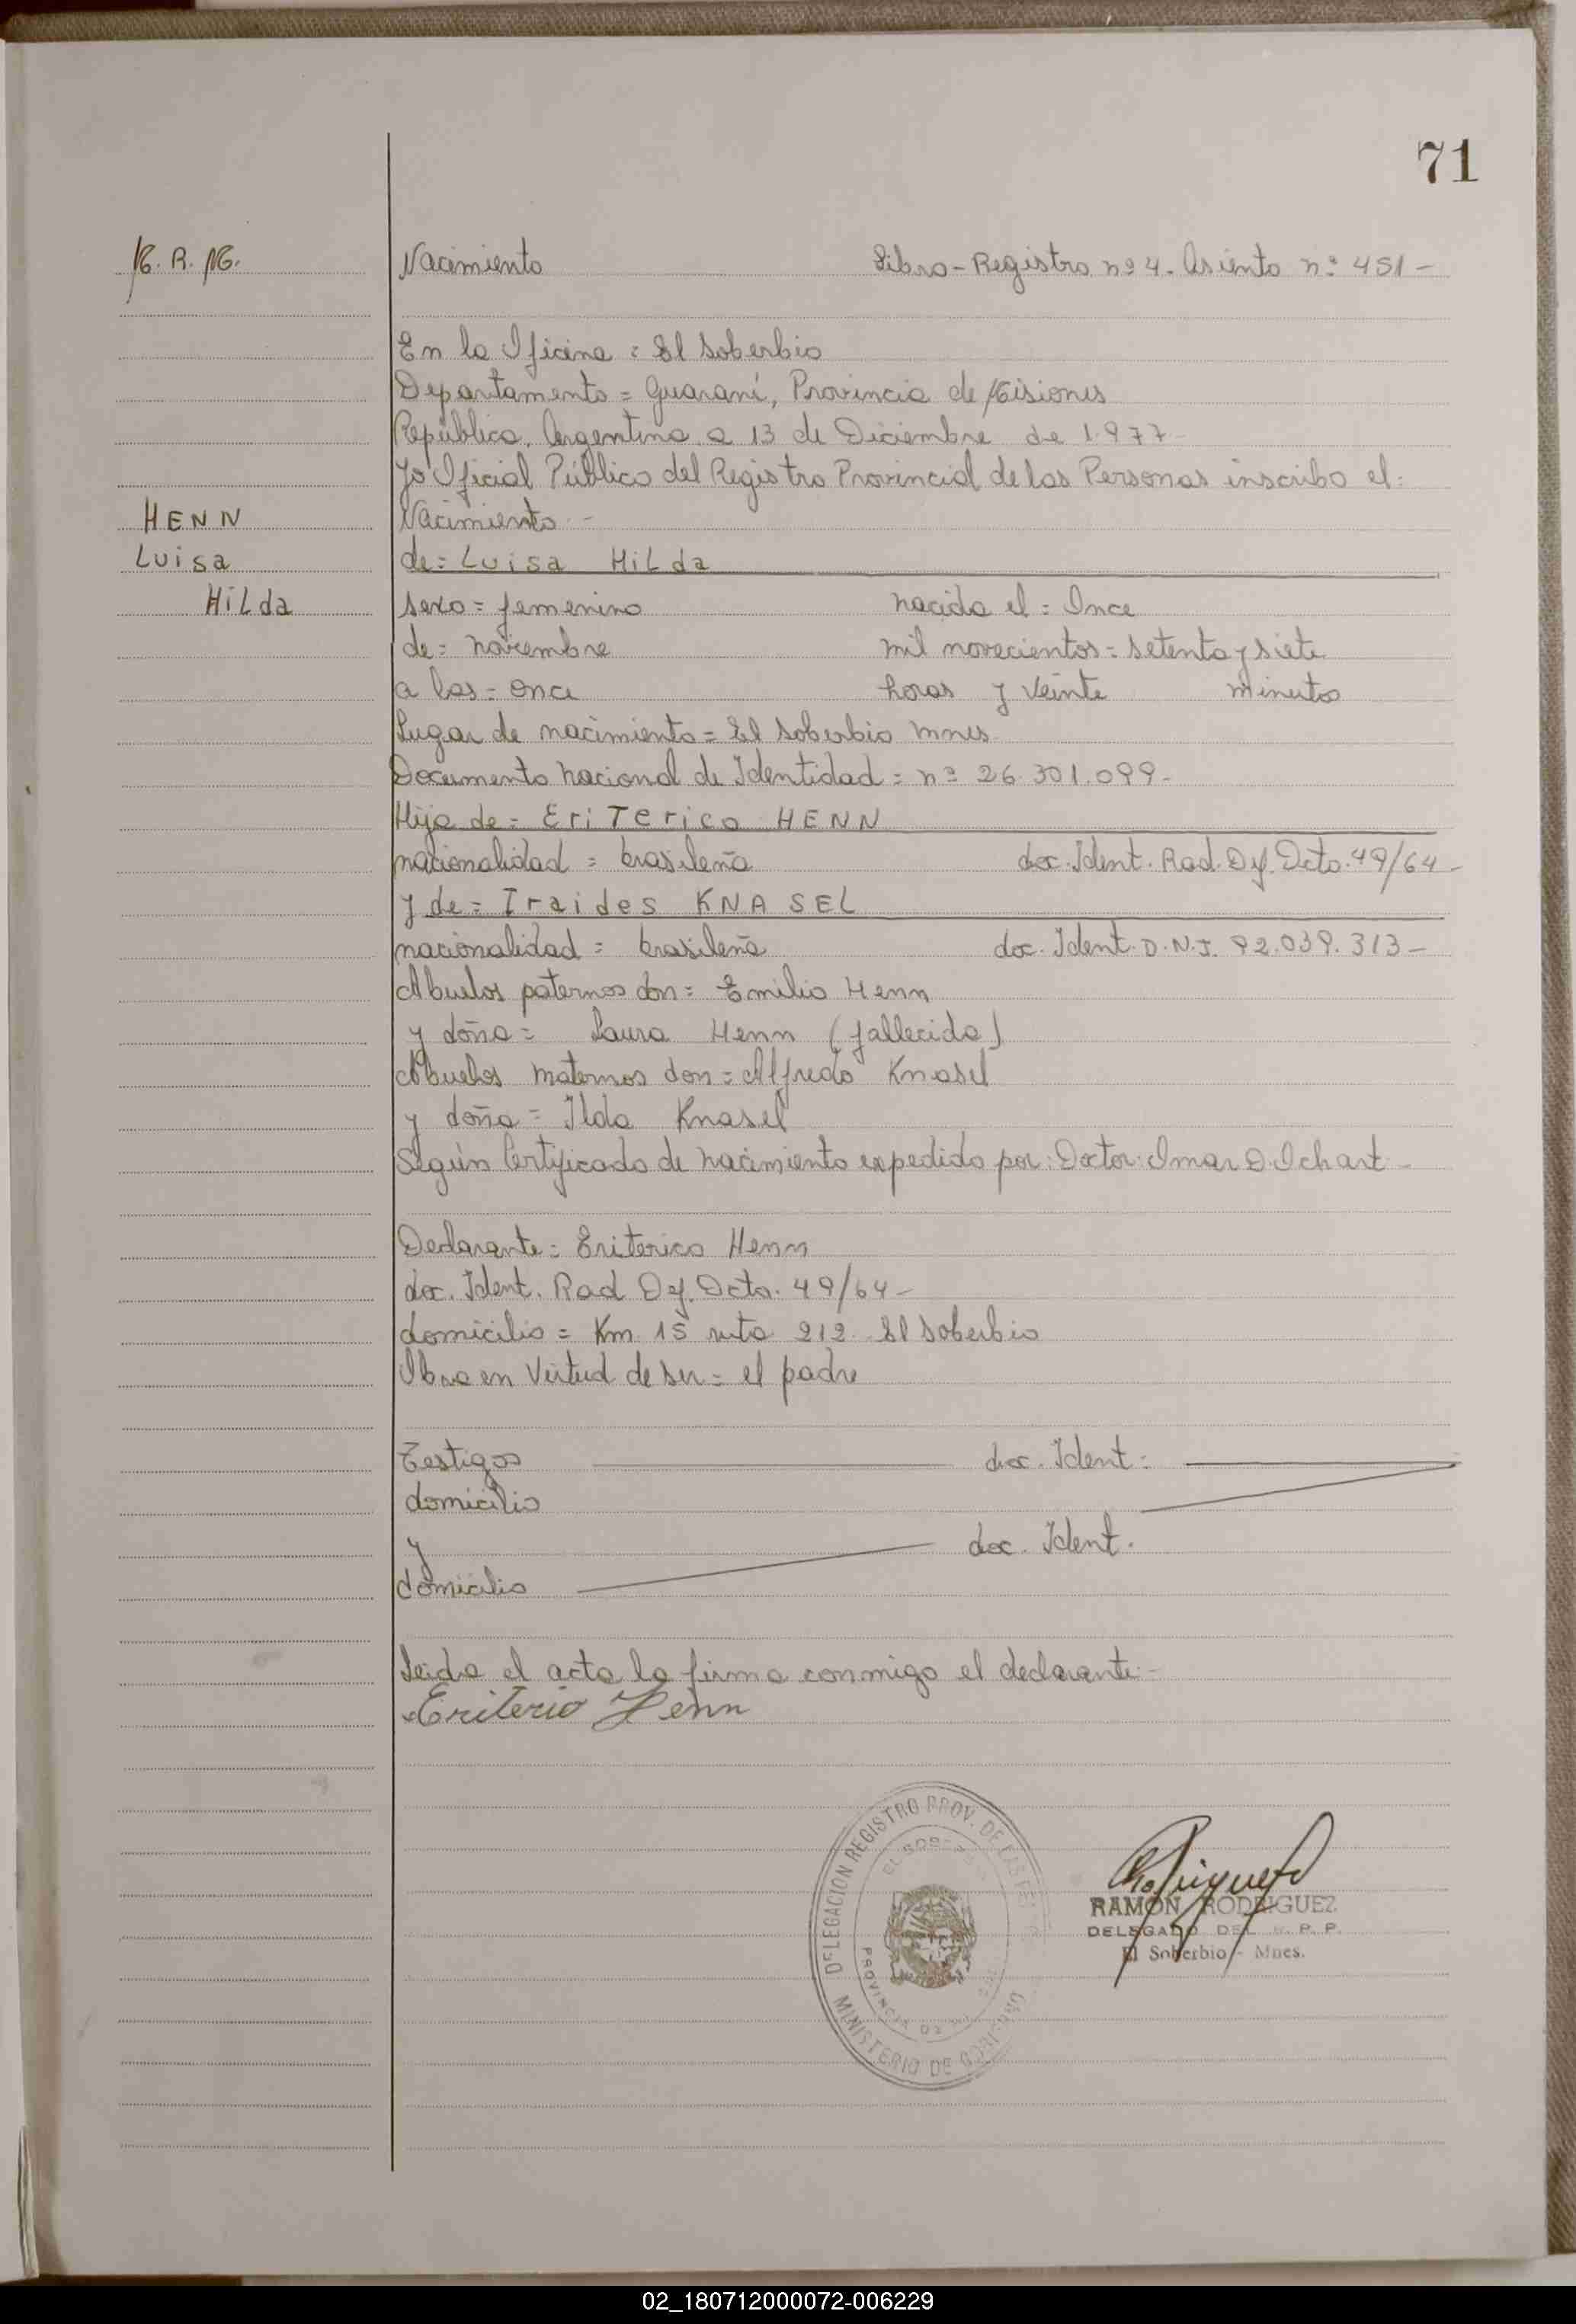 71
N. R. N.
Nacimiento Libro-Registro nº 4. Asiento nº 451-
En la Oficina = El Soberbio
Departamento = Guaraní, Provincia de Misiones
República Argentina a 13 de Diciembre de 1977-
Yo Oficial Público del Registro Provincial de las Personas inscribo el:
HENN
Nacimiento -
Luisa
de = Luisa Hilda
Hilda
sexo = femenino nacida el = Once
de = noviembre mil novecientos = setenta y siete
a las = once horas y veinte minutos
Lugar de nacimiento = El Soberbio Mnes.
Documento Nacional de Identidad = nº 26.301.099-
Hija de = EriTerico HENN
nacionalidad = brasileña doc. Ident. Rad. Def. Dcto. 49/64-
y de = Iraides KNASEL
nacionalidad = brasileña doc. Ident. D.N.I. 92.039.313-
Abuelos paternos don = Emilio Henn
y doña = Laura Henn (fallecida)
Abuelos maternos don = Alfredo Knasel
y doña = Ilda Knasel
Según Certificado de nacimiento expedido por: Doctor: Omar D. Ichart-
Declarante = Eriterico Henn
doc. Ident. Rad. Def. Dcto. 49/64-
domicilio = Km. 15 ruta 212 El Soberbio
Obra en Virtud de ser = el padre
Testigos doc. Ident:
domicilio
y doc. Ident.
domicilio
Leida el acta la firma conmigo el declarante-
Eriterio Henn
DELEGACION REGISTRO PROV. DE LAS
EL SOBERBIO
PROVINCIA DE
MINISTERIO DE GOBIERNO
RAMON RODRIGUEZ
DELEGADO DEL R. P. P.
El Soberbio - Mnes.
02_180712000072-006229